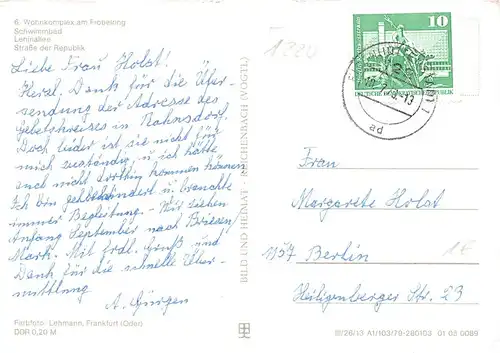 6. Wohnkomplex am Frobelring
Schwimmbad
Leninallee
Straße der Republik
Liebe Frau Holst!
Herzl. Dank für die Über-
sendung der Adresse des
Gebetskreises in Rahnsdorf.
Doch leider ist sie nicht für
mich zuständig, u. ich hätte
auch nicht dorthin kommen können
Ich bin gehbehindert u. brauche
immer Begleitung. - Wir ziehen
Anfang September nach Briesen/
Mark. Mit frdl. Gruß und
Dank für die schnelle Über-
mittlung
A. Gürgen
Farbfoto: Lehmann, Frankfurt (Oder)
DDR 0,20 M
BILD UND HEIMAT REICHENBACH (VOGTL)
1220
10
DEUTSCHE DEMOKRATISCHE REPUBLIK
ad
Frau
Margarete Holst
1157 Berlin
Heiligenberger Str. 23
1€
III/26/13 A1/103/79-280103 01 03 0089